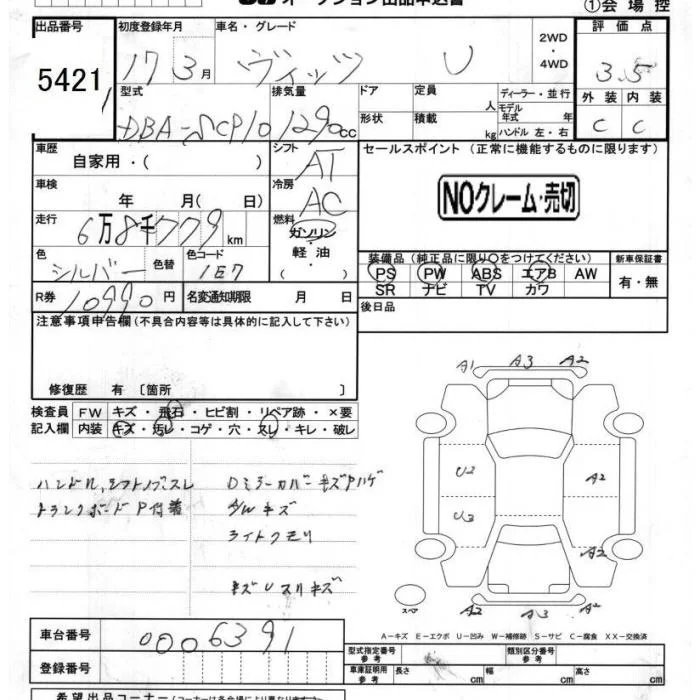 オークション出品申込書
①会場控
出品番号 初度登録年月 車名・グレード 2WD・4WD 評価点
5421 17 3月 ヴィッツ U 3.5
型式 排気量 ドア 定員 人 ディーラー・並行 外装 内装
DBA-SCP10 1290cc 形状 積載 kg モデル年式 年 ハンドル 左・右 C C
車歴 シフト セールスポイント(正常に機能するものに限ります)
自家用・( ) AT
車検 冷房 NOクレーム・売切
年 月( 日) AC
走行 燃料
6万8千779km ガソリン
色 色替 色コード 軽油 装備品(純正品に限り○をつけてください) 新車保証書
シルバー 1E7 ・( ) PS PW ABS エアB AW 有・無
SR ナビ TV カワ
R券 10990円 名変通知期限 月 日 後日品
注意事項申告欄(不具合内容等は具体的に記入して下さい)
修復歴 有 〔箇所 〕
検査員 FW キズ・飛石・ヒビ割・リペア跡・×要
記入欄 内装 キズ・汚レ・コゲ・穴・スレ・キレ・破レ
A1 A3 A2
ハンドル、シフトノブスレ Dミラーカバーキズアハゲ U2 A2
トランクボードP付着 ダルキズ U3
ライトクモリ A2
キズUスリキズ
スペ A2 A3 A2
A−キズ E−エクボ U−凹み W−補修跡 S−サビ C−腐食 XX−交換済
車台番号 0006391
登録番号
型式指定番号 参考 類別区分番号 参考
車庫証明用 参考 長さ cm 幅 cm 高さ cm
希望出品コーナー